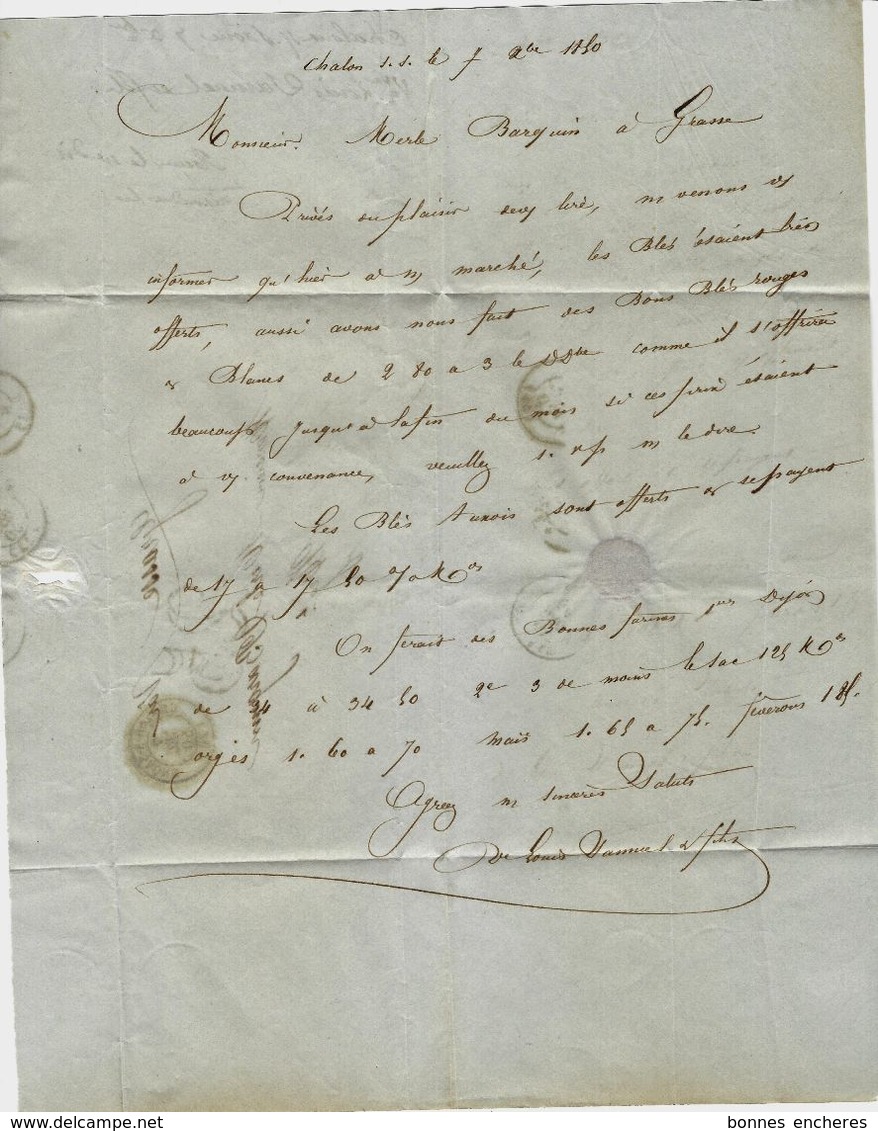 Chalon s. s. le 7 9bre 1850
Monsieur Merle Barquin à Grasse
Privés du plaisir de vs liré, ns venons vs
informer qu'hier à n/ marché, les Blés étaient très
offerts, aussi avons nous fait des Bons Blés rouges
& Blancs de 2 80 a 3 le DDbe comme il s'offrira
beaucoup jusqu'à la fin du mois si ces prix étaient
à v/ convenance, veuillez s. v. p ns le dire.
Les Blés Auxois sont offerts & se payent
de 17 a 17 50 % Kos
On ferait des Bonnes farines pr Dijon
de 34 à 34 50 2e 3 de moins le sac 125 Kos
orges 1. 60 a 70 mais 1. 65 a 75. féverous 1 85.
Agreez ns sincères Saluts
Ve Louis Vannuel & fils
delcampe.net
bonnes encheres